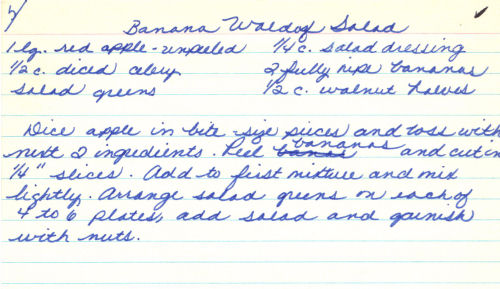 Banana Waldof Salad
1 lg. red apple - unpeeled 1/4 c. salad dressing
1/2 c. diced celery 2 fully ripe bananas
salad greens 1/2 c. walnut halves
Dice apple in bite-size pieces and toss with
next 2 ingredients. Peel bananas and cut in
1/4" slices. Add to first mixture and mix
lightly. Arrange salad greens on each of
4 to 6 plates, add salad and garnish
with nuts.